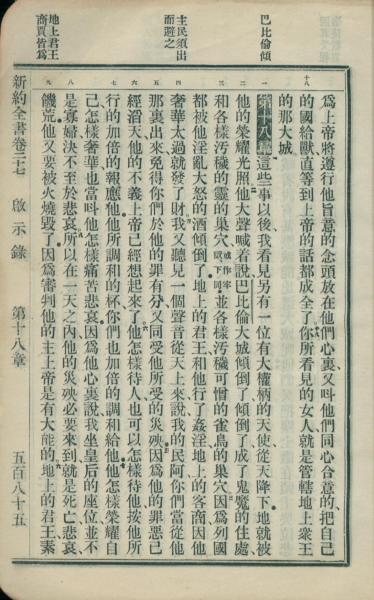 巴比倫傾
主民須出
而避之
地上君王
商賈皆為
十八
為上帝將遵行他旨意的念頭放在他們心裏又叫他們同心合意的把自己
的國給獸直等到上帝的話都成全了你所看見的女人就是管轄地上衆王
的那大城
第十八章這些事以後我看見另有一位有大權柄的天使從天降下地就被
他的榮耀光照他大聲喊着說巴比倫大城傾倒了傾倒了成了鬼魔的住處
和各樣污穢的靈的巢穴或作牢獄下同並各樣污穢可憎的雀鳥的巢穴因為列國
都被他淫亂大怒的酒傾倒了地上的君王和他行了姦淫地上的客商因他
奢華太過就發了財我又聽見一個聲音從天上來說我的民阿你們當從他
那裏出來免得你們於他的罪有分又同受他所受的災殃因為他的罪惡已
經滔天他的不義上帝已經想起來了他怎樣待人也可以怎樣待他按他所
行的加倍的報應他他所調和的杯你們也加倍的調和給他他怎樣榮耀自
己怎樣奢華也當叫他怎樣痛苦悲哀因為他心裏說我坐皇后的座位並不
是寡婦決不至於悲哀所以在一天之內他的災殃必要來到就是死亡悲哀
饑荒他又要被火燒毀了因為審判他的主上帝是有大能的地上的君王素
新約全書卷二十七 啟示錄 第十八章 五百八十五